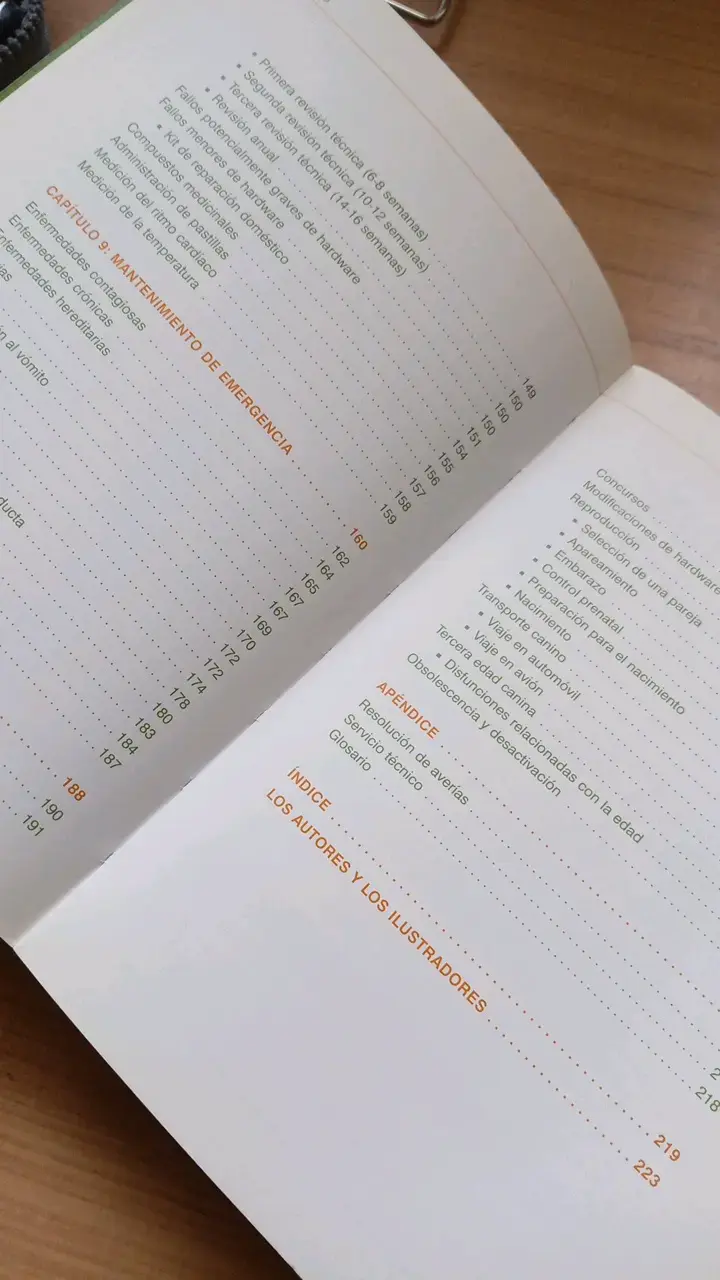 • Primera revisión técnica (6-8 semanas) 149
• Segunda revisión técnica (10-12 semanas) 150
• Tercera revisión técnica (14-16 semanas) 150
• Revisión anual 150
Fallos potencialmente graves de hardware 151
Fallos menores de hardware 154
• Kit de reparación doméstico 155
Compuestos medicinales 156
Administración de pastillas 157
Medición del ritmo cardiaco 158
Medición de la temperatura 159
CAPÍTULO 9: MANTENIMIENTO DE EMERGENCIA 160
Enfermedades contagiosas 162
Enfermedades crónicas 164
Enfermedades hereditarias 165
167
167
169
al vómito 170
172
172
174
178
180
183
184
187
188
190
191
Concursos
Modificaciones de hardware
Reproducción
• Selección de una pareja
• Apareamiento
• Embarazo
• Control prenatal
• Preparación para el nacimiento
• Nacimiento
Transporte canino
• Viaje en automóvil
• Viaje en avión
Tercera edad canina
• Disfunciones relacionadas con la edad
Obsolescencia y desactivación
APÉNDICE
Resolución de averías
Servicio técnico
Glosario 218
ÍNDICE 219
LOS AUTORES Y LOS ILUSTRADORES 223